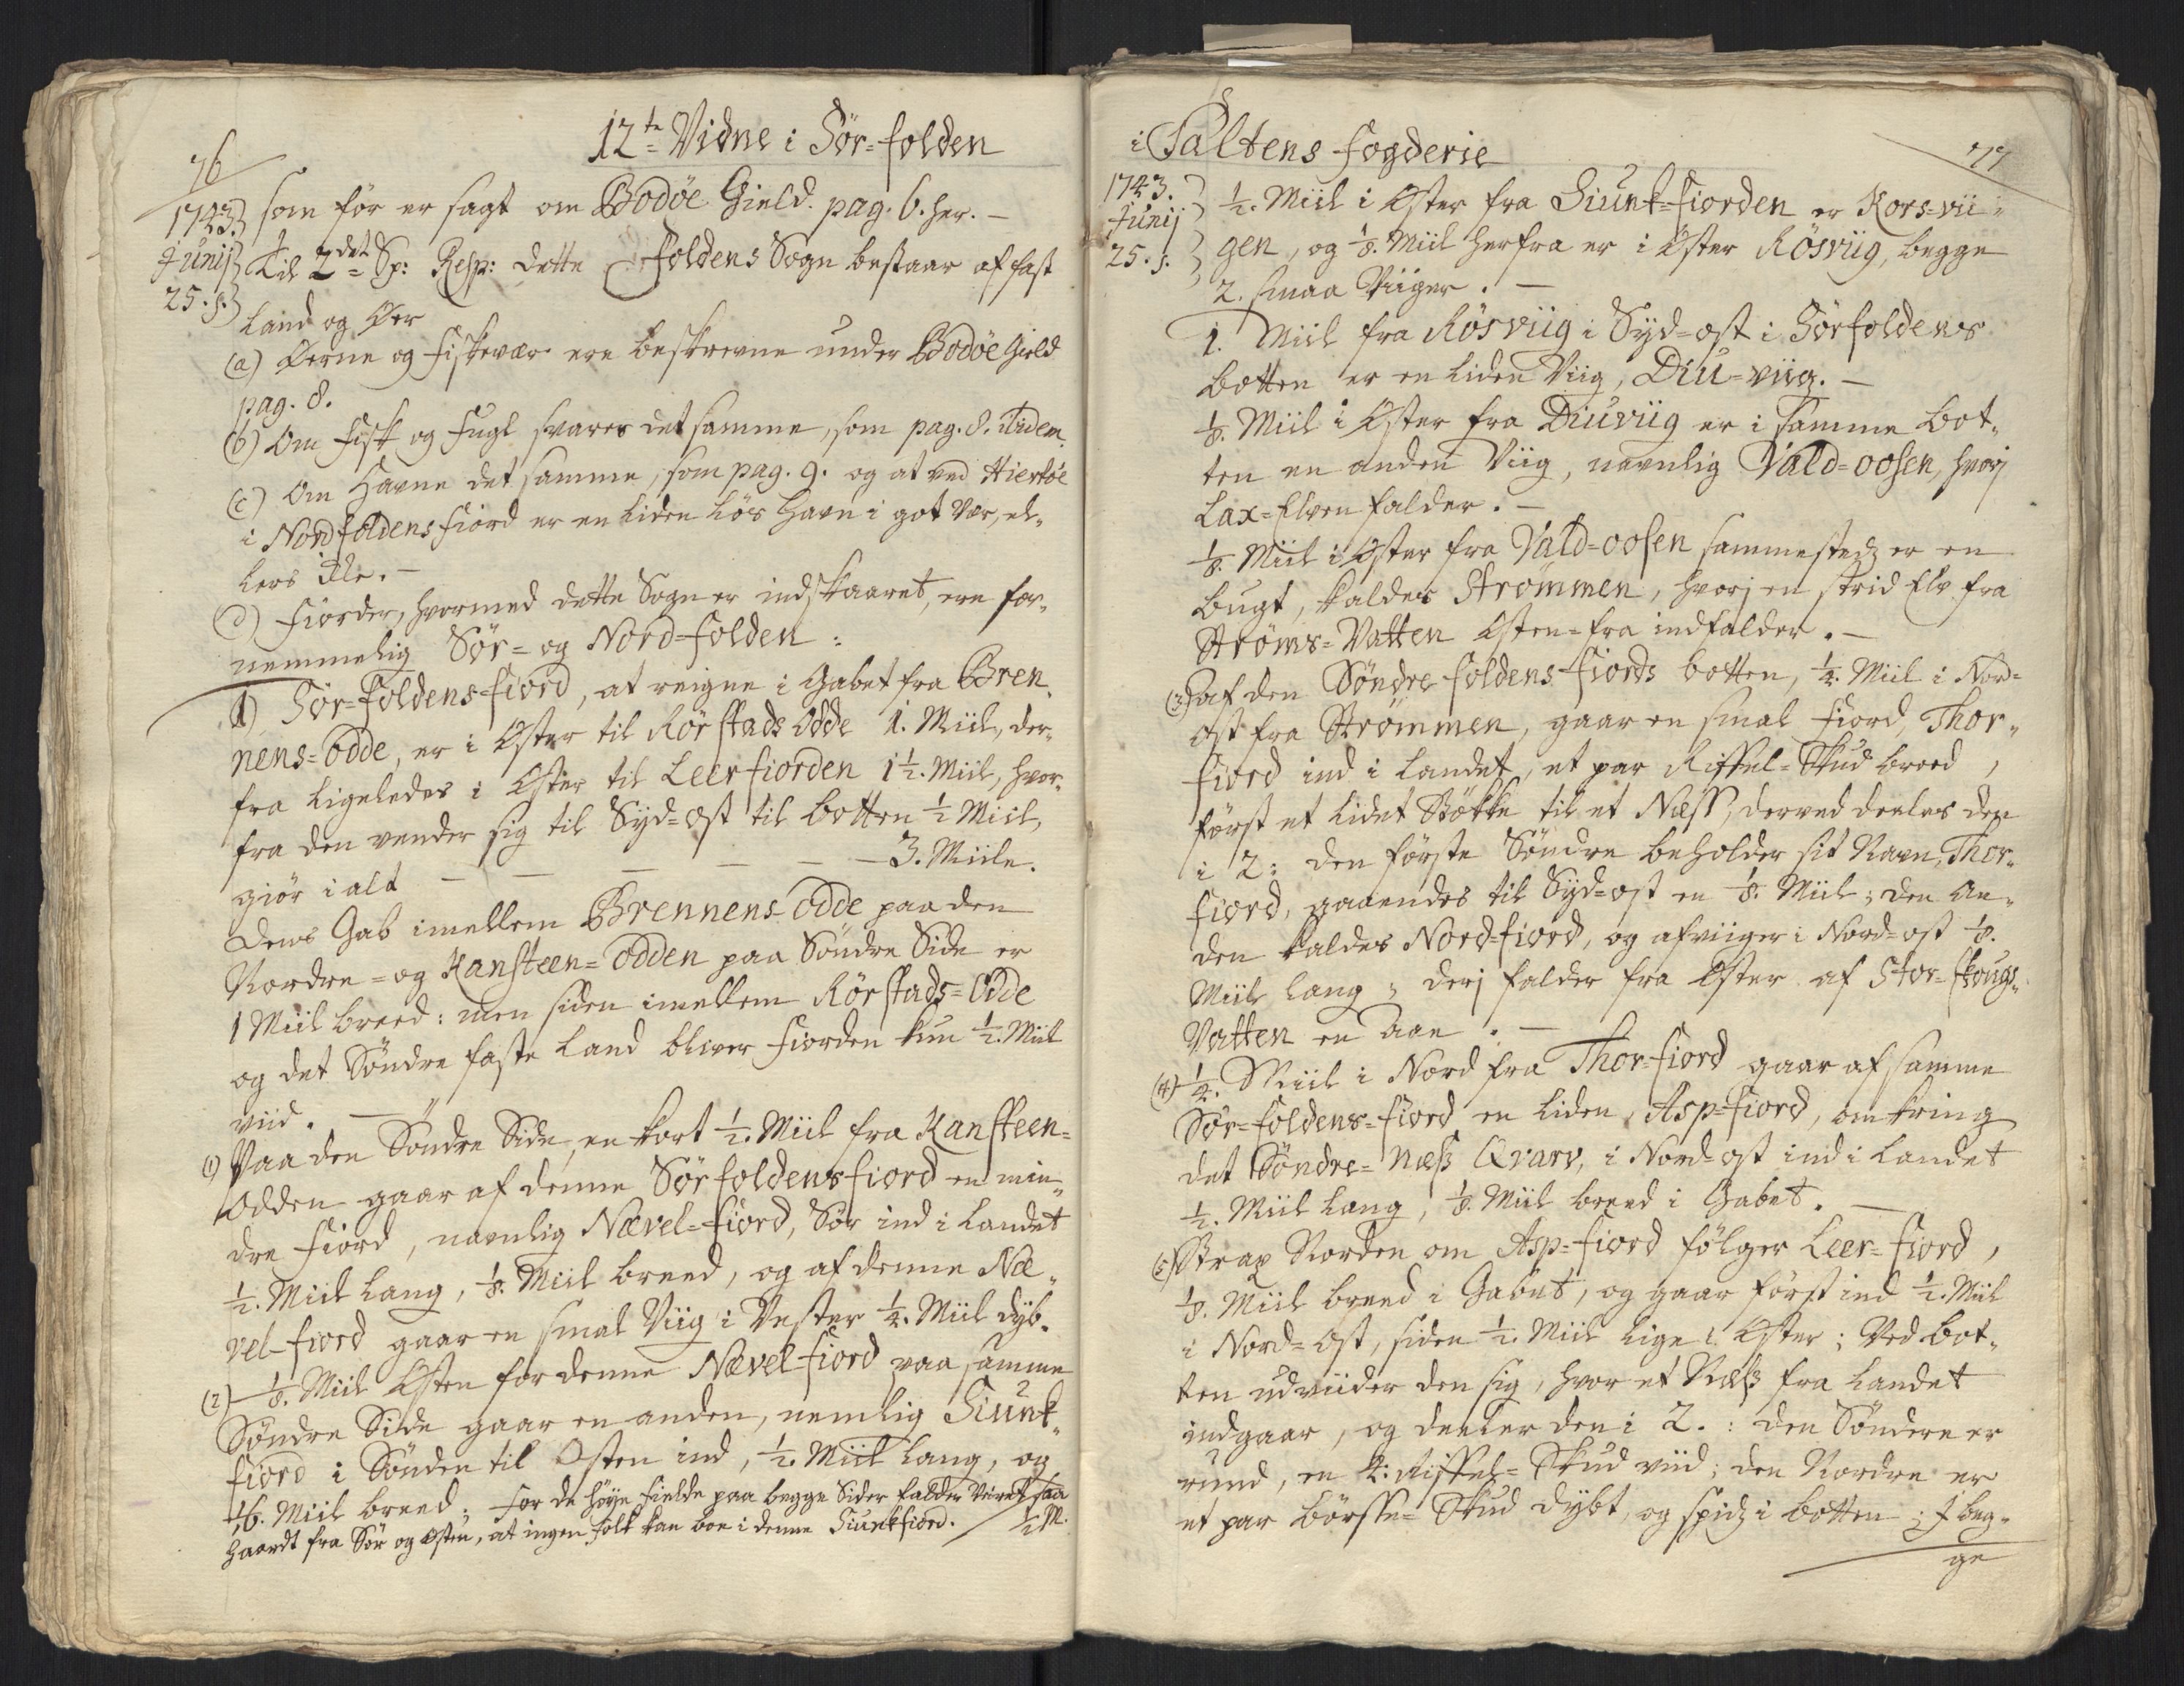 76
12te Vidne i Sör=folden
1743.
Junij
25. s.
som för er sagt om Bodöe Gield. pag. 6. her. –
Til 2det Sp: Resp: dette Foldens Sogn bestaar af fast
Land og Öer
(a) Öerne og Fiskevær ere beskrevne under Bodöe Gield
pag. 8.
(b) Om Fisk og Fugl svares det samme, som pag. 8. ibidem.
(c) Om Havne det samme, som pag. 9. og at ved Hiertöe
i Nordfoldens Fiord er en liden lös Havn i got Veir, el„
lers ikke. –
(d) Fiorder, hvormed dette Sogn er indskaaret, ere for„
nemmelig Sör= og Nord=folden:
1) Sör=foldens=fiord, at reigne i Gabet fra Bren„
nens=odde, er i Öster til Rörstads Odde 1. Miil, der„
fra ligeledes i Öster til Leerfiorden 1 1/2. Miil, hvor„
fra den vender sig til Syd=ost til botten 1/2 Miil,
giör i alt – – – – – – 3. Miile.
Dens Gab imellem Brennens=odde paa den
Nordre= og Kansteen=odden paa Söndre Side er
1 Miil breed: men siden imellem Rörstads=Odde
og det Söndre faste Land bliver Fiorden kun 1/2. Miil
viid. –
(1) Paa den Söndre Side, en kort 1/2. Miil fra Kansteen=
odden gaar af denne Sörfoldensfiord en min„
dre Fiord, navnlig Nævel=fiord, Sör ind i Landet
1/2. Miil lang, 1/8. Miil breed, og af denne Næ„
vel-fiord gaar en smal Viig i Vester 1/4. Miil dyb.
(2) – 1/8. Miil Östen for denne Nævel=fiord paa samme
Söndre Side gaar en anden, nemlig Siunk„
fiord i Sönden til Östen ind, 1/2. Miil lang, og
1/16. Miil breed. For de höye Fielde paa begge Sider falder Veiret saa
haardt fra Sör og Östen, at ingen Folk kan boe i denne Siunkfiord.
1/2 M.
77
i Saltens Fogderie
1743.
Junij
25. s.
1/2. Miil i Öster fra Siunk=fiorden er Kors=vii„
gen, og 1/8. Miil herfra er i Öster Rösviig, begge
2. smaa Viiger. –
1. Miil fra Rösviig i Syd=ost i Sörfoldens
botten er en liden Viig, Diu=viig. –
1/8. Miil i Öster fra Diuviig er i samme bot„
ten en anden Viig, navnlig Vald=oosen, hvorj
Lax=Elven falder. –
1/8. Miil i Öster fra Vald=oosen sammestedz er en
bugt, kaldes Strömmen, hvorj en strid Elv fra
Ströms=Vatten Östen=fra indfalder. –
(3) af den Söndre foldens=fiords botten, 1/4. Miil i Nord=
ost fra Strömmen, gaar en smal Fiord, Thor„
fiord ind i Landet, et par Riffel=Skud breed,
först et lidet Stökke til et Næss, derved deeles den
i 2: den förste Söndre beholder sit Navn, Thor„
fiord, gaaendes til Syd=ost en 1/8. Miil; den An„
den kaldes Nord=fiord, og afviiger i Nord=ost 1/8.
Miil lang; derj falder fra Öster af Stor=skougs„
Vatten en Aae. –
(4) 1/2. Miil i Nord fra Thor=fiord gaar af samme
Sör=foldens=fiord en liden, Asp=fiord, omkring
det Söndre= Næss Qvarv, i Nord=ost ind i Landet
1/2. Miil lang, 1/8. Miil breed i Gabet. –
(5) Strax Norden om Asp=fiord fölger Leer=fiord,
1/8. Miil breed i Gabet, og gaar först ind 1/2. Miil
i Nord=ost, siden 1/2. Miil lige i Öster; Ved bot„
ten udviider den sig, hvor et Næss fra Landet
indgaar, og deeler den i 2.: den Söndere er
rund, en k: Riffel=Skud viid; den Nordre er
et par börsse=Skud dybt, og spidz i botten; I beg„
ge